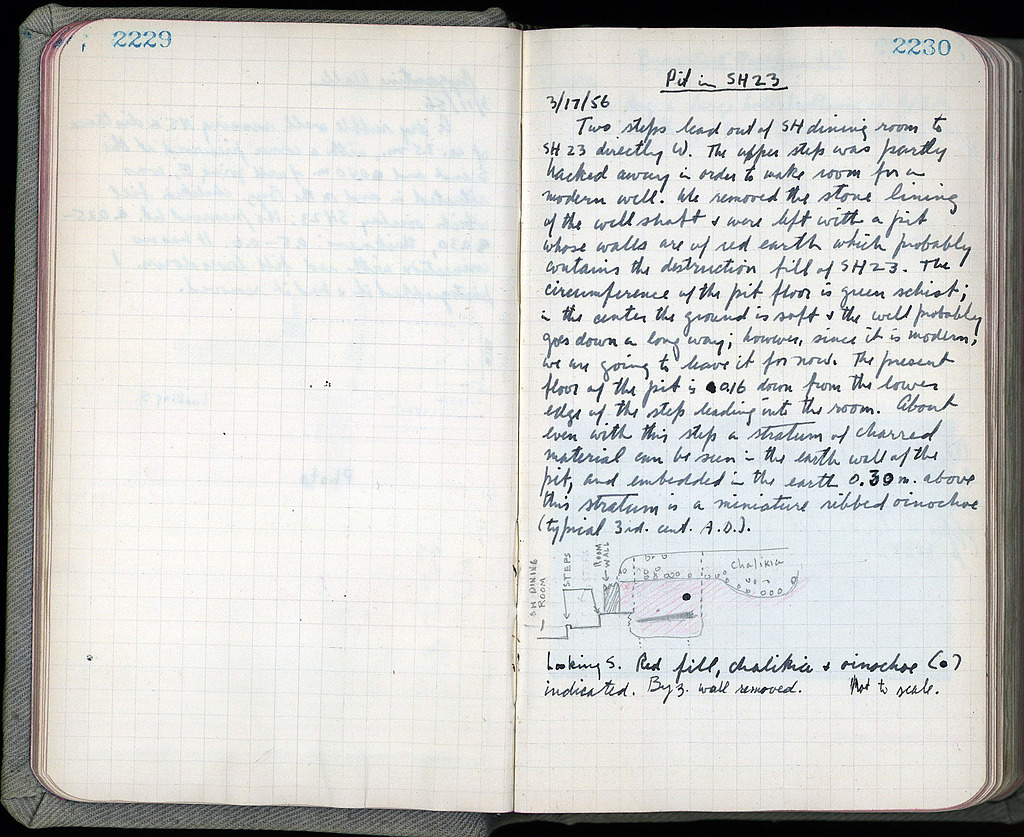 2229
2230
Pit in SH23
3/17/56
Two steps lead out of SH dining room to
SH 23 directly W. The upper step was partly
hacked away in order to make room for a
modern well. We removed the stone lining
of the well shaft & were left with a pit
whose walls are of red earth which probably
contains the destruction fill of SH23. The
circumference of the pit floor is green schist;
in the center the ground is soft & the well probably
goes down a long way; however, since it is modern,
we are going to leave it for now. The present
floor of the pit is 0.16 down from the lower
edge of the step leading into the room. About
even with this step a stratum of charred
material can be seen in the earth wall of the
pit, and embedded in the earth 0.30 m. above
this stratum is a miniature ribbed oinochoe
(typical 3rd. cent. A.D.).
SH DINING
ROOM
STEPS
ROOM
WALL
Chalikia
Looking S. Red fill, chalikia & oinochoe (●)
indicated. Byz. wall removed. Not to scale.